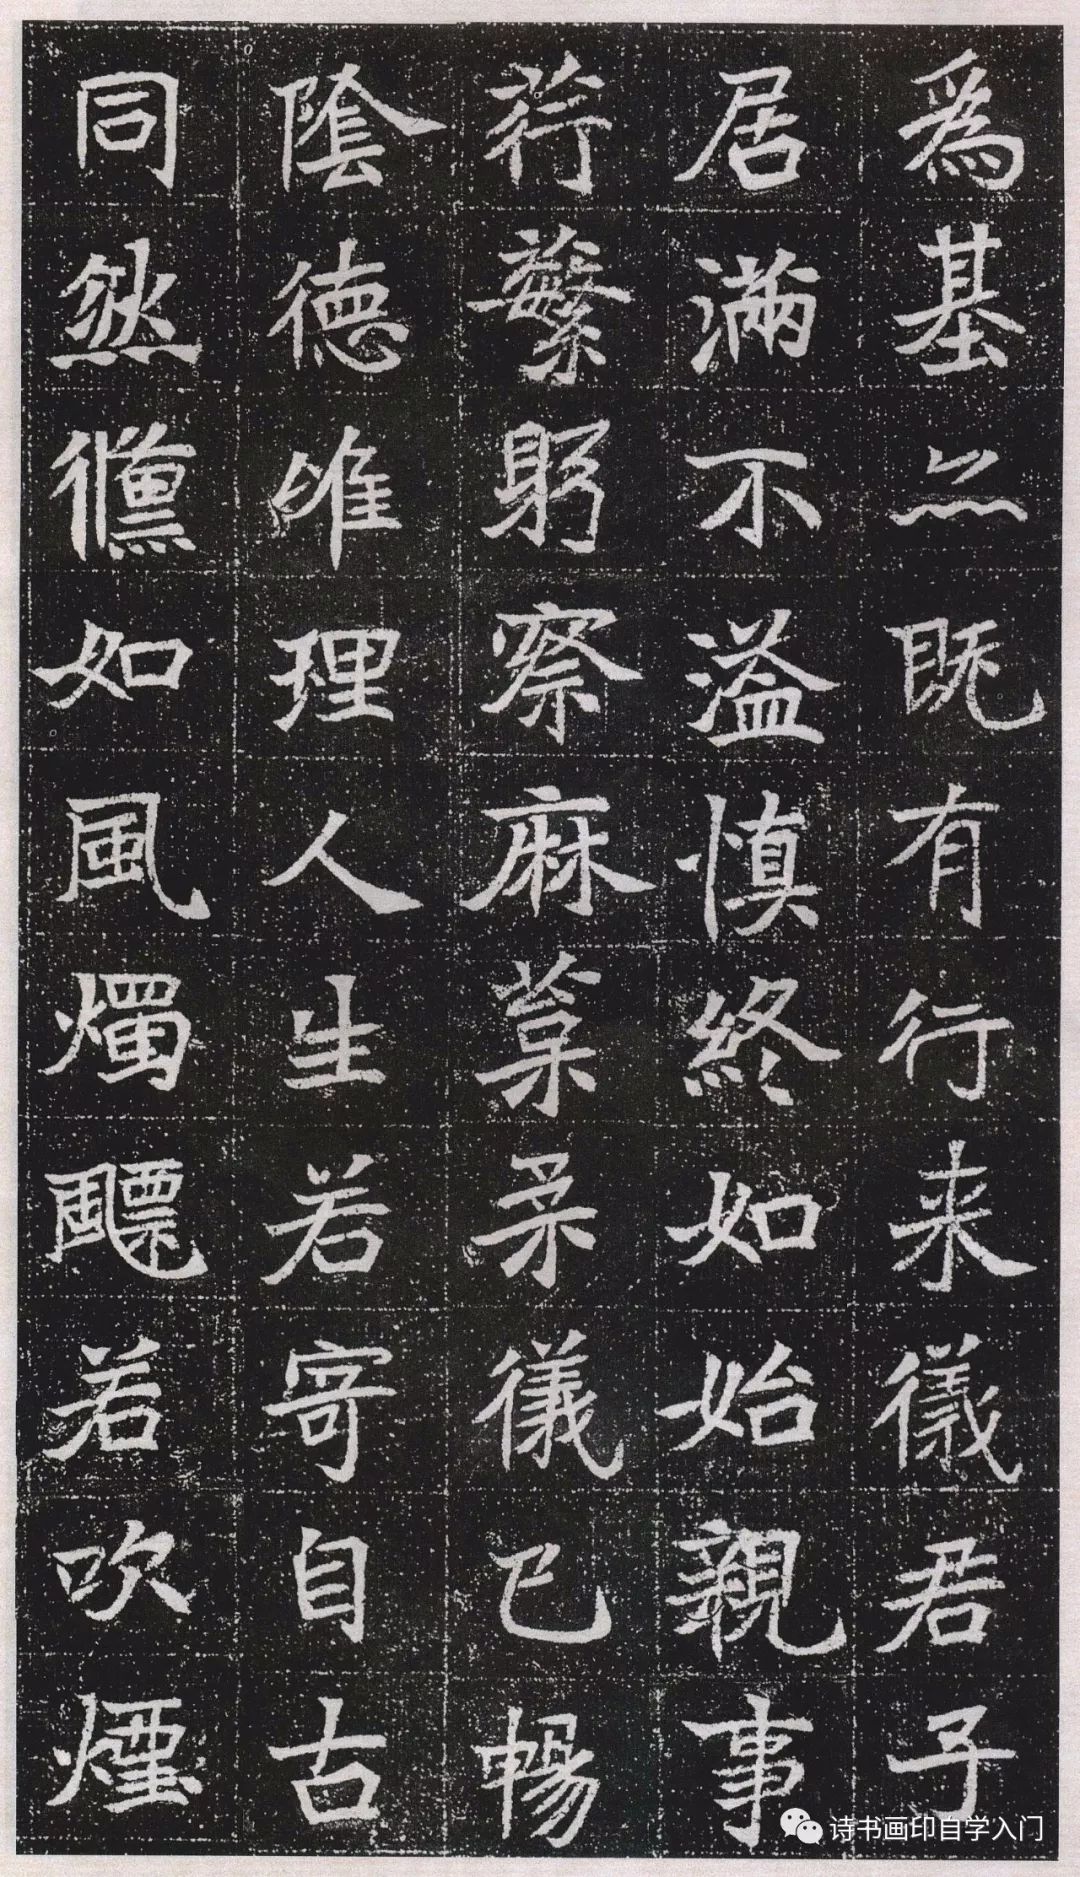 為基亦既有行来儀君子
居滿不溢慎終如始親事
荇蘩躬察麻菒柔儀已暢
陰德唯理人生若寄自古
同然儻如風燭飃若吹煙
诗书画印自学入门